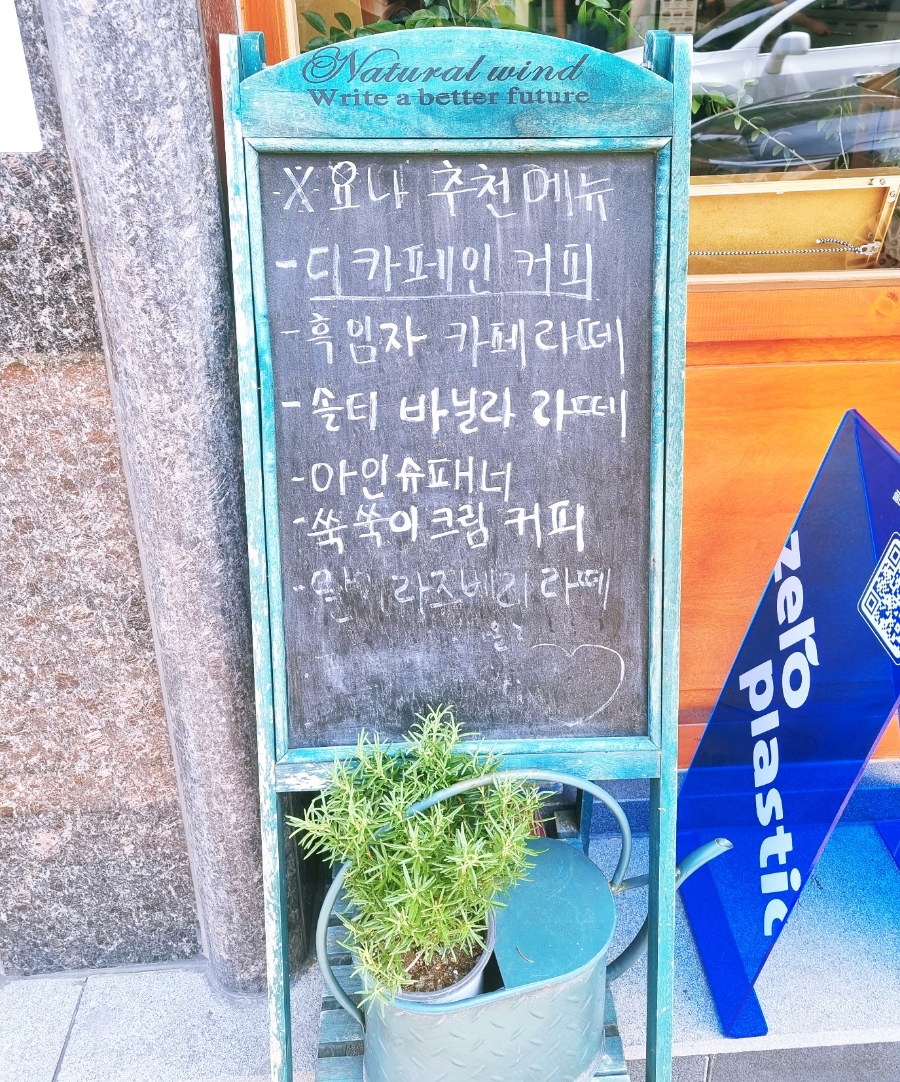 Natural wind
Write a better future
X 요나 추천메뉴
- 디카페인 커피
- 흑임자 카페라떼
- 솔터 바닐라 라떼
- 아인슈패너
- 쑥쑥이크림 커피
- 라즈베리 라떼
zero
plastic